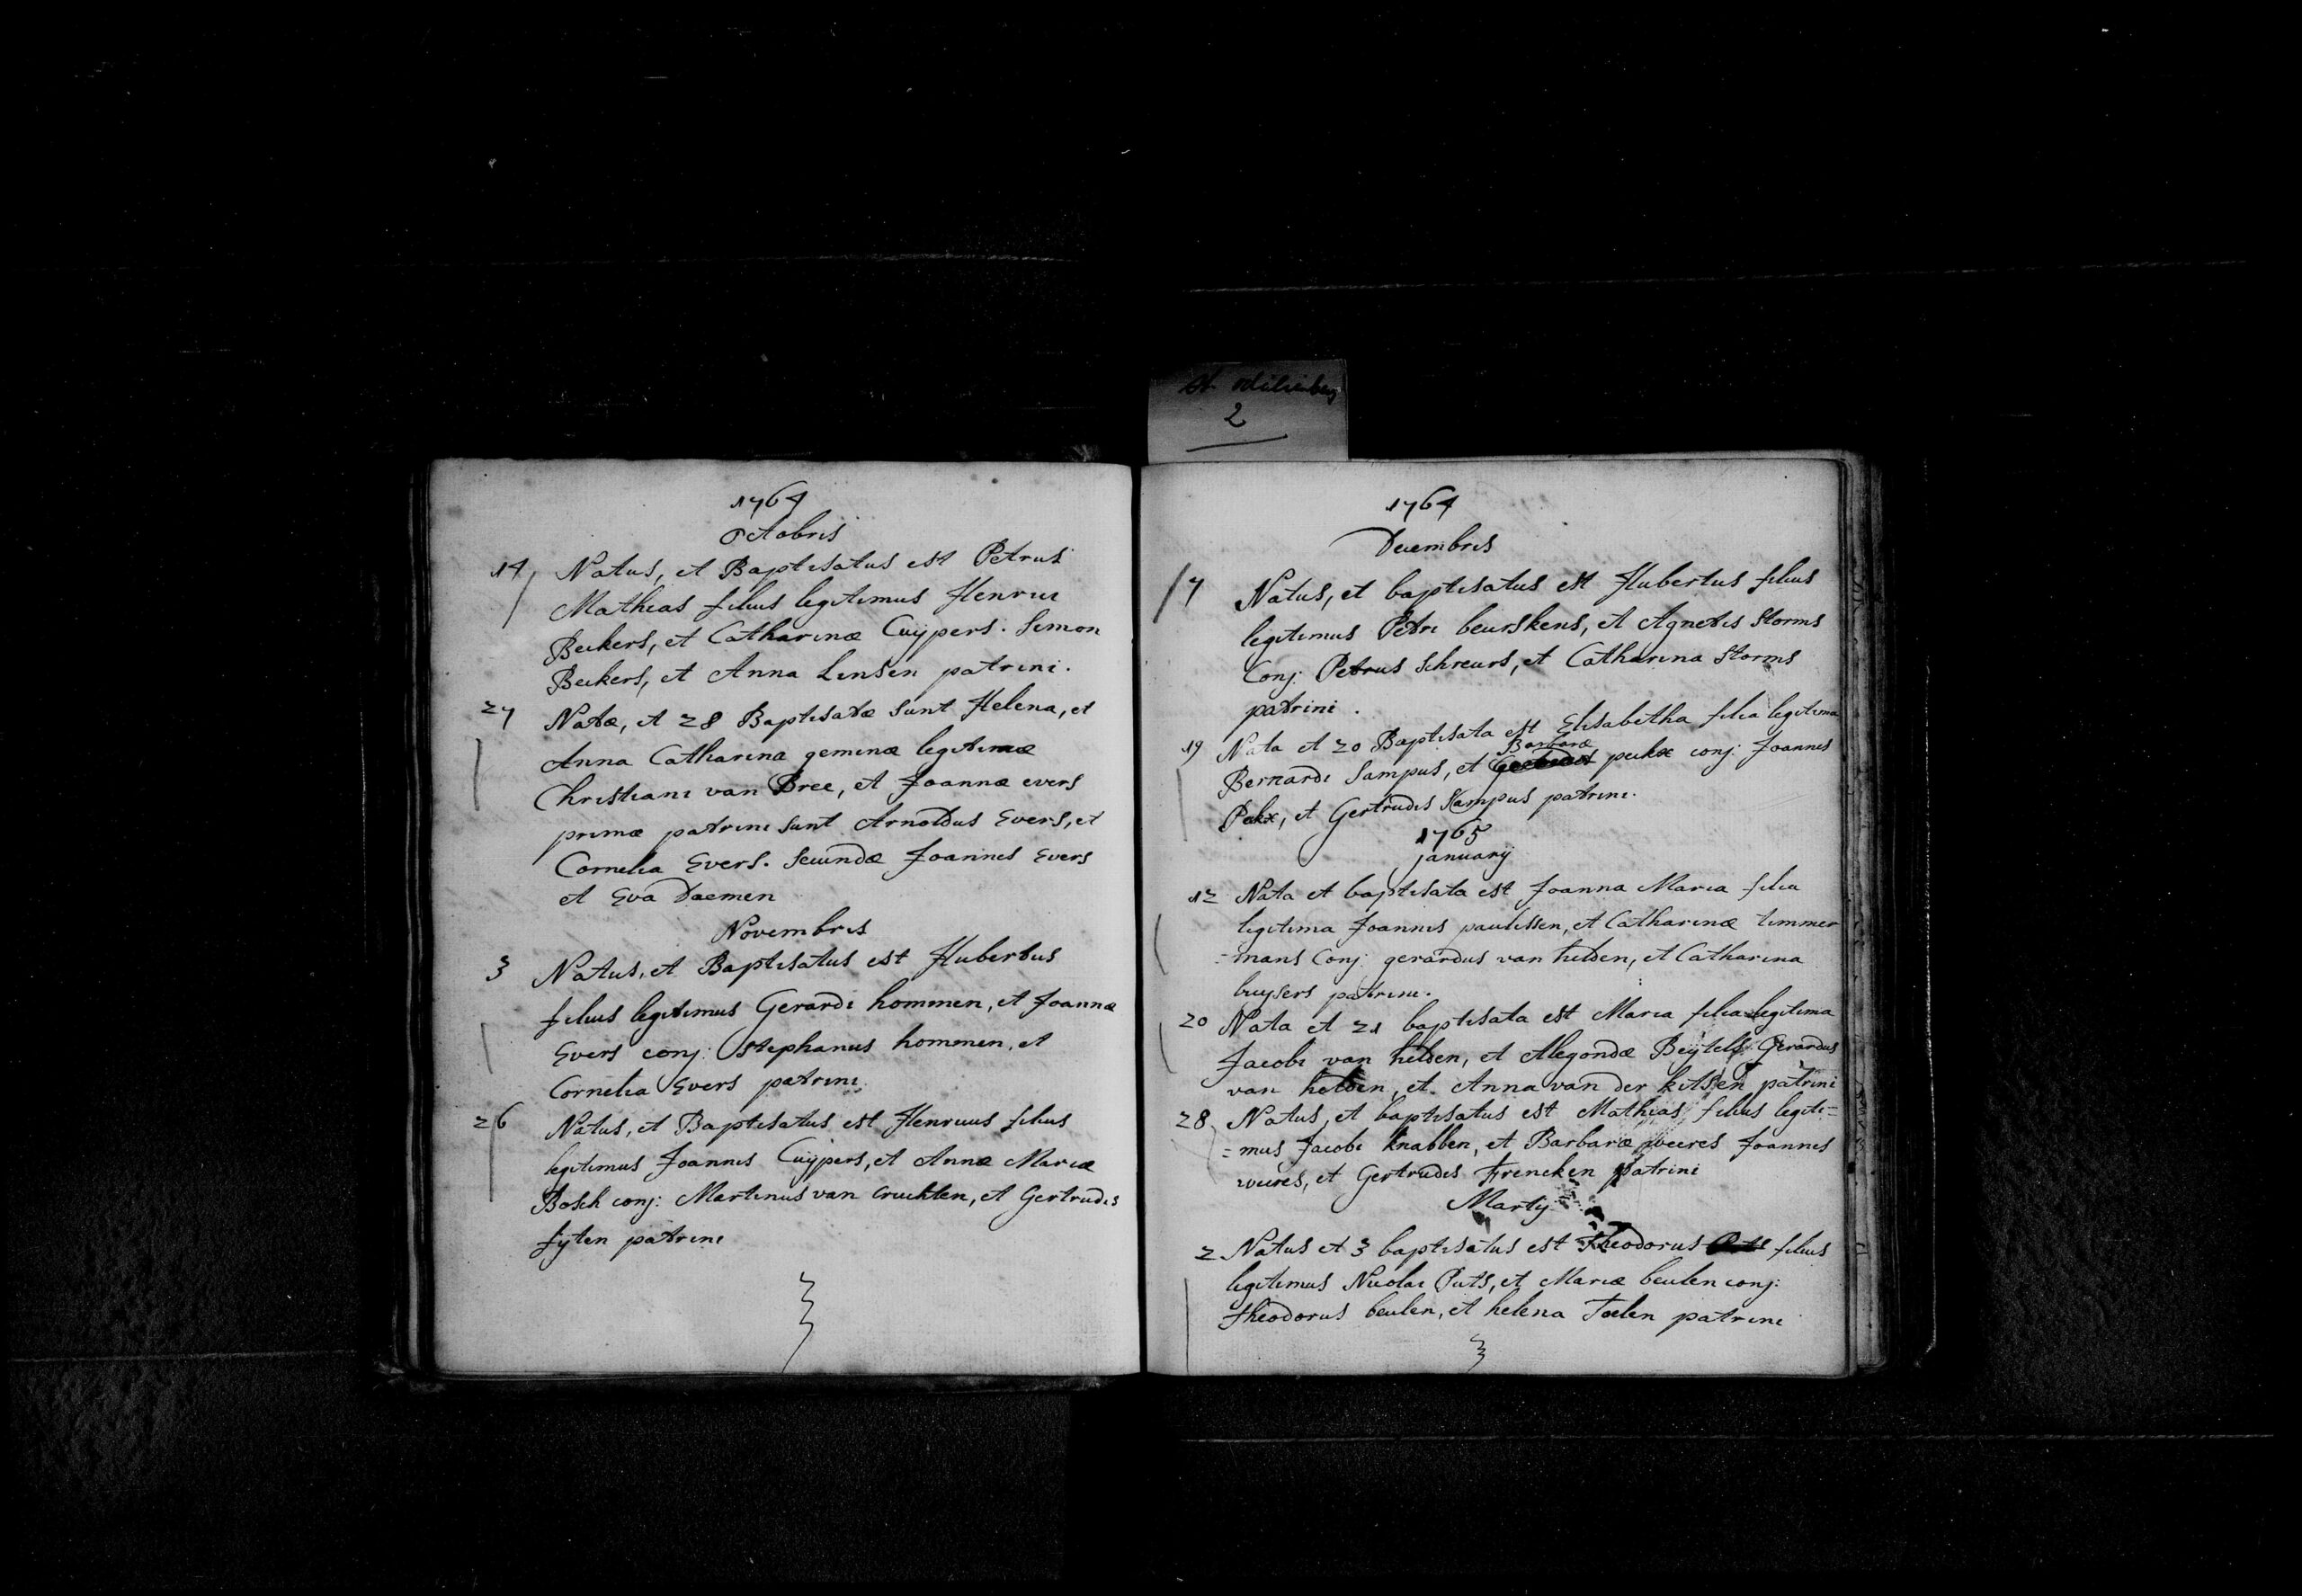 St odilienberg
2
1764
octobris
14 Natus, et Baptisatus est Petrus
Mathias filius legitimus Henrici
Beckers, et Catharinæ Cuÿpers. Simon
Beckers, et Anna Linsen patrini.
27 Natæ, et 28 Baptisatæ sunt Helena, et
Anna Catharina geminæ legitimæ
Christiani van Bree, et Joannæ evers
primæ patrini sunt Arnoldus Evers, et
Cornelia Evers. secundæ Joannes Evers
et Eva Daemen
Novembris
3 Natus, et Baptisatus est Hubertus
filius legitimus Gerardi hommen, et Joannæ
Evers conj: Stephanus hommen, et
Cornelia Evers patrini
26 Natus, et Baptisatus est Henricus filius
legitimus Joannis Cuÿpers, et Annæ Mariæ
Bosch conj: Martinus van cruchten, et Gertrudis
fijten patrini
1764
Decembris
7 Natus, et baptisatus est Hubertus filius
legitimus Petri beurskens, et Agnetis Storms
Conj: Petrus Schreurs, et Catharina Storms
patrini.
19 Nata et 20 Baptisata est Elisabetha filia legitima
Barbaræ
Bernardi Sampus, et peckx conj: Joannes
Peckx, et Gertrudis Sampus patrini.
1765
januarij
12 Nata et baptisata est Joanna Maria filia
legitima Joannis paulissen, et Catharinæ timmer
=mans Conj: gerardus van helden, et Catharina
buysers patrini.
20 Nata et 21 baptisata est Maria filia legitima
Jacobi van helden, et Alegondæ Beÿtels Gerardus
van helden, et Anna van der kitsen patrini
28 Natus, et baptisatus est Mathias filius legiti=
=mus Jacobi knabben, et Barbaræ weeres Joannes
weeres, et Gertrudis Frencken patrini
Martij
2 Natus et 3 baptisatus est Theodorus filius
legitimus Nicolai Puts, et Mariæ beulen conj:
theodorus beulen, et helena Toelen patrini